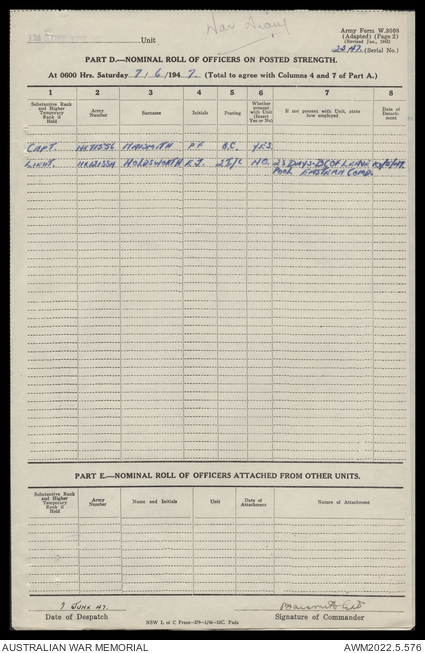 War Diary
Army Form W.3008
(Adapted) (Page 2)
(Revised Jan., 1942)
Unit
23/47. (Serial No.)
PART D.—NOMINAL ROLL OF OFFICERS ON POSTED STRENGTH.
At 0600 Hrs. Saturday 7/6/1947. (Total to agree with Columns 4 and 7 of Part A.)
1 2 3 4 5 6 7 8
Substantive Rank and Higher Temporary Rank if Held
Army Number
Surname
Initials
Posting
Whether present with Unit (Insert Yes or No)
If not present with Unit, state how employed
Date of Detachment
CAPT. NAISMITH P F O.C. YES.
LIEUT. HOLDSWORTH E.J. 2 I/C NO. 28 DAYS LEAVE
POOL EASTERN COMD.
PART E.—NOMINAL ROLL OF OFFICERS ATTACHED FROM OTHER UNITS.
Substantive Rank and Higher Temporary Rank if Held
Army Number
Name and Initials
Unit
Date of Attachment
Nature of Attachment
9 JUNE 47.
Date of Despatch
Signature of Commander
NSW L of C Press
AUSTRALIAN WAR MEMORIAL
AWM2022.5.576